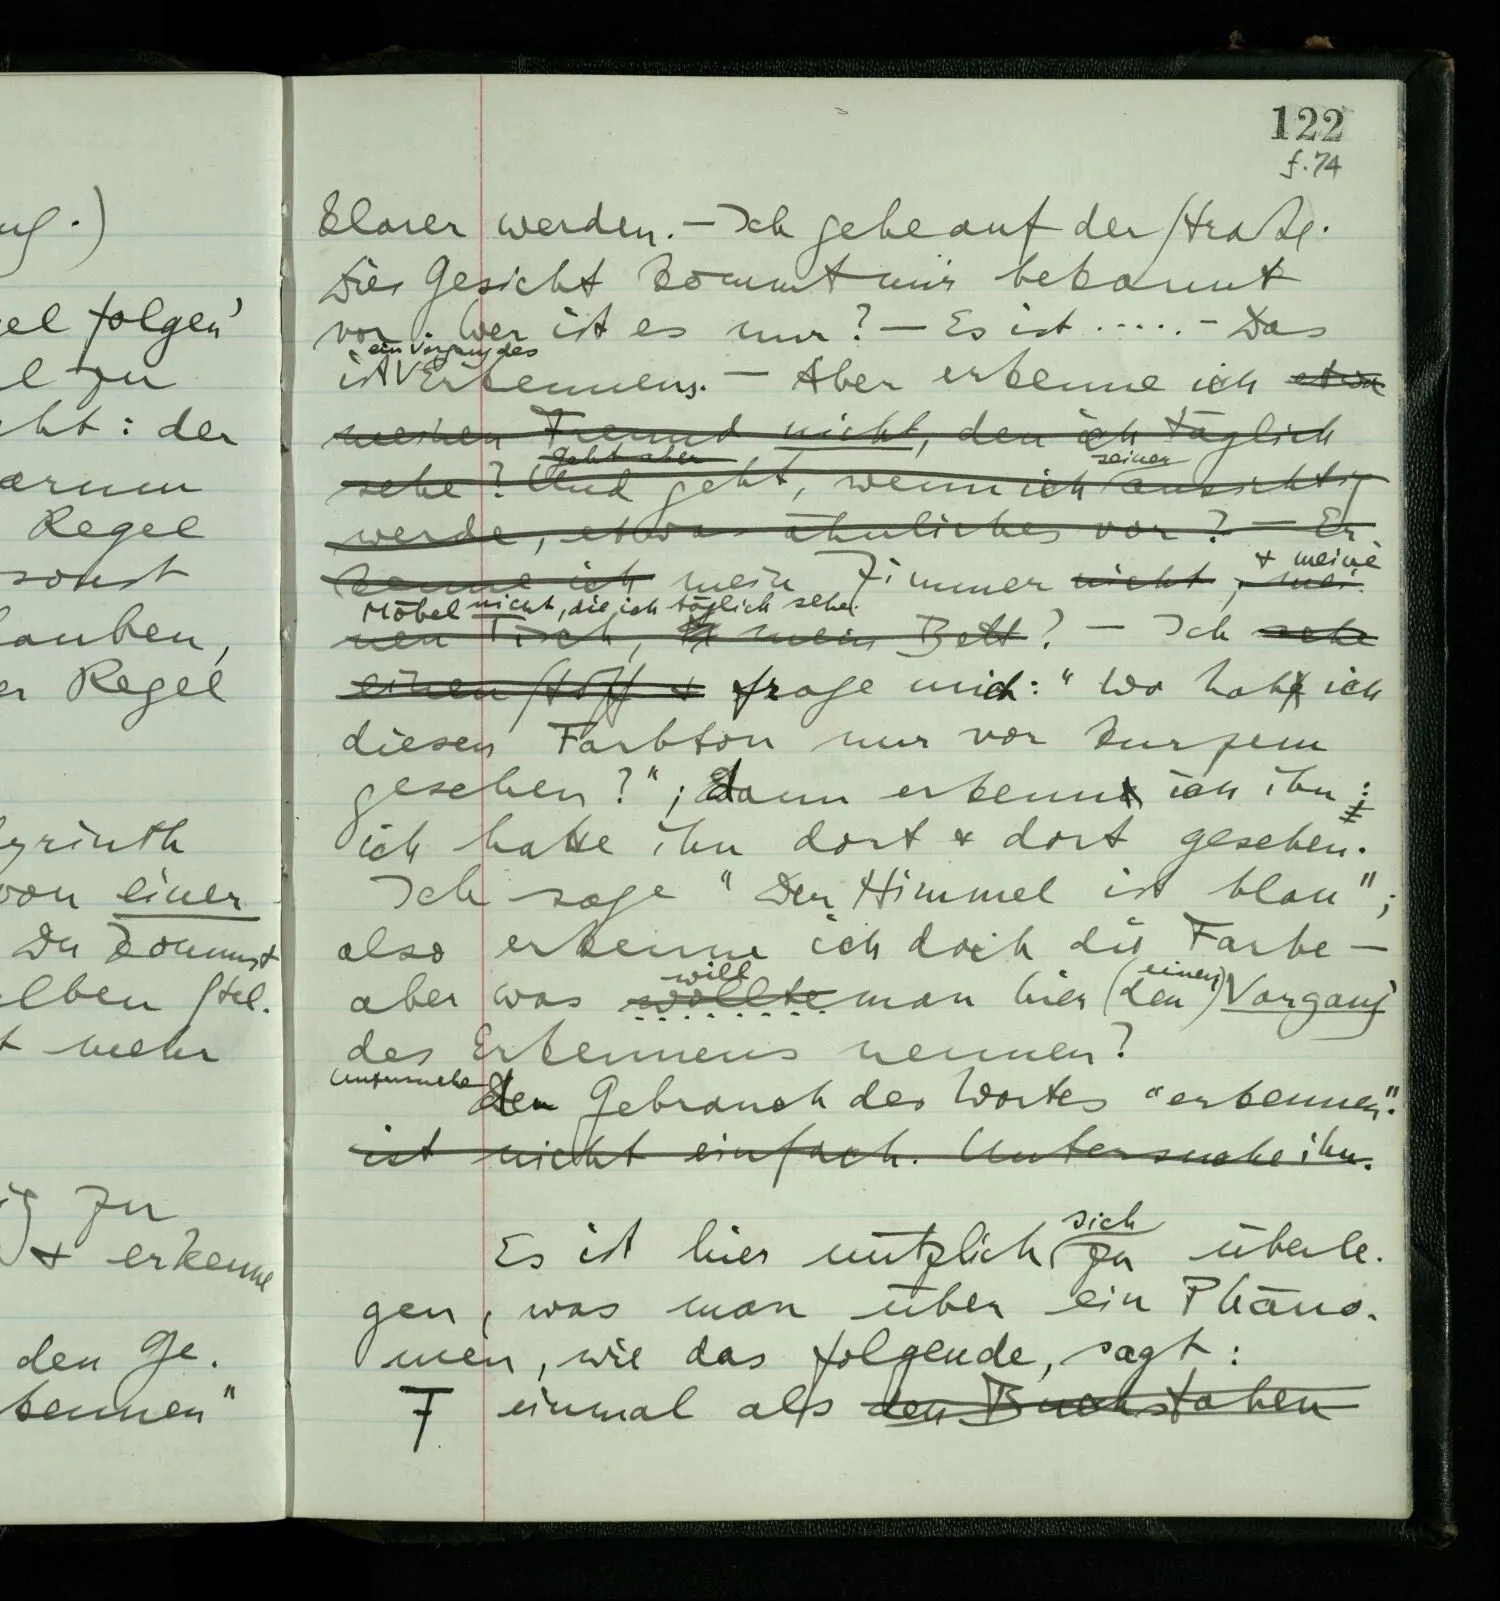 ug.)
el folgen'
l zu
cht: der
arum
Regel
sonst
lauben,
er Regel
yrinth
von einer
Du kommst
elben Stel.
t mehr
ig zu
& erkenne
den Ge.
kennen"
122
f.74
klarer werden. – Ich gehe auf der Straße.
Dies Gesicht kommt mir bekannt
vor. Wer ist es nur? – Es ist ..... – Das
ein Vorgang des
ist Erkennens. – Aber erkenne ich etwa
meinen Freund nicht, den ich täglich
geht aber seiner
sehe? Und geht, wenn ich ansichtig
werde, etwas ähnliches vor? – Er
& meine
kenne ich mein Zimmer nicht, mei
Möbel nicht, die ich täglich sehe
nen Tisch, mein Bett? – Ich sehe
einen Stoff & frage mich: "Wo hab ich
diesen Farbton nur vor kurzem
gesehen?"; dann erkenn ich ihn:
ich hatte ihn dort & dort gesehen.
Ich sage "Der Himmel ist blau";
also erkenne ich doch die Farbe –
will einen
aber was wollte man hier (den) Vorgang
des Erkennens nennen?
Untersuche
den Gebrauch des Wortes "erkennen".
ist nicht einfach. Untersuche ihn.
sich
Es ist hier nützlich zu überle.
gen, was man über ein Phäno.
men, wie das folgende, sagt:
F einmal als den Buchstaben